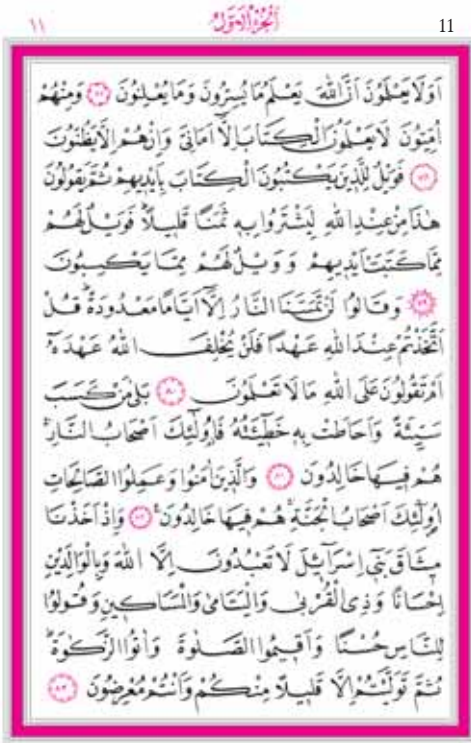 ١١ اَلْجُزْءُ الْاَوَّلُ 11
اَوَلَا يَعْلَمُونَ اَنَّ اللّٰهَ يَعْلَمُ مَا يُسِرُّونَ وَمَا يُعْلِنُونَ ﴿٧٧﴾ وَمِنْهُمْ
اُمِّيُّونَ لَا يَعْلَمُونَ الْكِتَابَ اِلَّٓا اَمَانِيَّ وَاِنْ هُمْ اِلَّا يَظُنُّونَ
﴿٧٨﴾ فَوَيْلٌ لِلَّذِينَ يَكْتُبُونَ الْكِتَابَ بِاَيْدِيهِمْ ثُمَّ يَقُولُونَ
هٰذَا مِنْ عِنْدِ اللّٰهِ لِيَشْتَرُوا بِهِ ثَمَنًا قَلِيلًا فَوَيْلٌ لَهُمْ
مِمَّا كَتَبَتْ اَيْدِيهِمْ وَوَيْلٌ لَهُمْ مِمَّا يَكْسِبُونَ
﴿٧٩﴾ وَقَالُوا لَنْ تَمَسَّنَا النَّارُ اِلَّٓا اَيَّامًا مَعْدُودَةً قُلْ
اَتَّخَذْتُمْ عِنْدَ اللّٰهِ عَهْدًا فَلَنْ يُخْلِفَ اللّٰهُ عَهْدَهُٓ
اَمْ تَقُولُونَ عَلَى اللّٰهِ مَا لَا تَعْلَمُونَ ﴿٨٠﴾ بَلٰى مَنْ كَسَبَ
سَيِّئَةً وَاَحَاطَتْ بِهِ خَطِٓيـَٔتُهُ فَاُولٰٓئِكَ اَصْحَابُ النَّارِ
هُمْ فِيهَا خَالِدُونَ ﴿٨١﴾ وَالَّذِينَ اٰمَنُوا وَعَمِلُوا الصَّالِحَاتِ
اُولٰٓئِكَ اَصْحَابُ الْجَنَّةِ هُمْ فِيهَا خَالِدُونَ ﴿٨٢﴾ وَاِذْ اَخَذْنَا
مِيثَاقَ بَنِٓي اِسْرَٓائِلَ لَا تَعْبُدُونَ اِلَّا اللّٰهَ وَبِالْوَالِدَيْنِ
اِحْسَانًا وَذِي الْقُرْبٰى وَالْيَتَامٰى وَالْمَسَاكِينِ وَقُولُوا
لِلنَّاسِ حُسْنًا وَاَقِيمُوا الصَّلٰوةَ وَاٰتُوا الزَّكٰوةَ
ثُمَّ تَوَلَّيْتُمْ اِلَّا قَلِيلًا مِنْكُمْ وَاَنْتُمْ مُعْرِضُونَ ﴿٨٣﴾